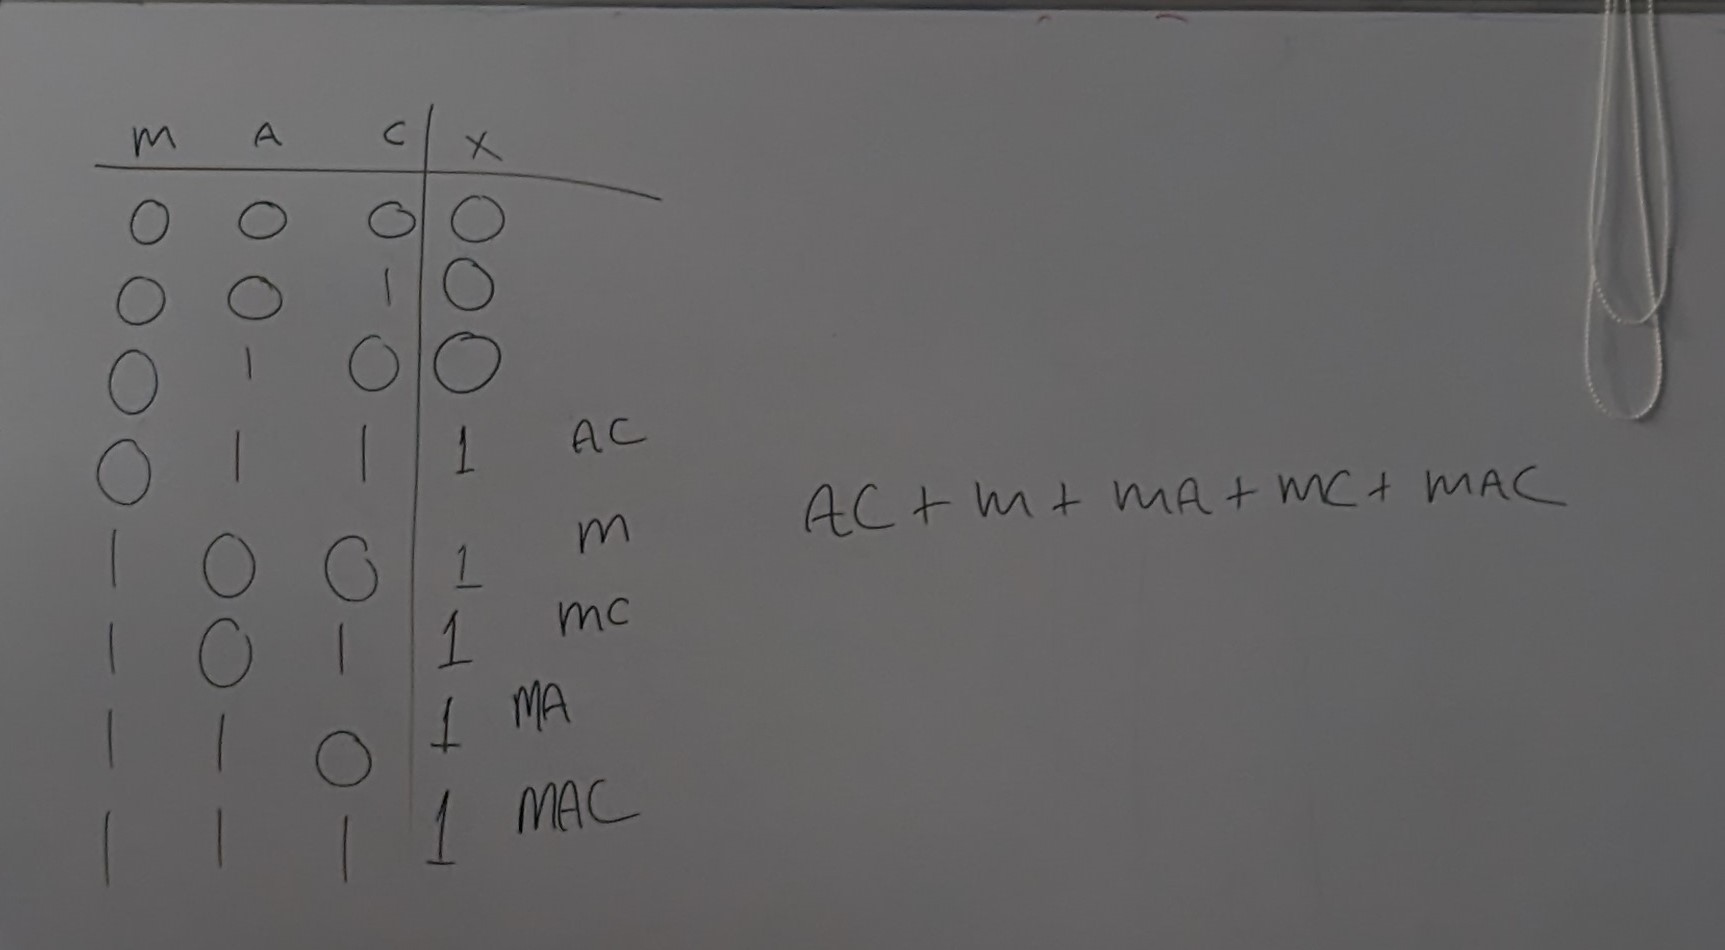 M A C X
0 0 0 0
0 0 1 0
0 1 0 0
0 1 1 1 AC
1 0 0 1 m
1 0 1 1 mC
1 1 0 1 MA
1 1 1 1 MAC
AC + m + mA + mC + mAC